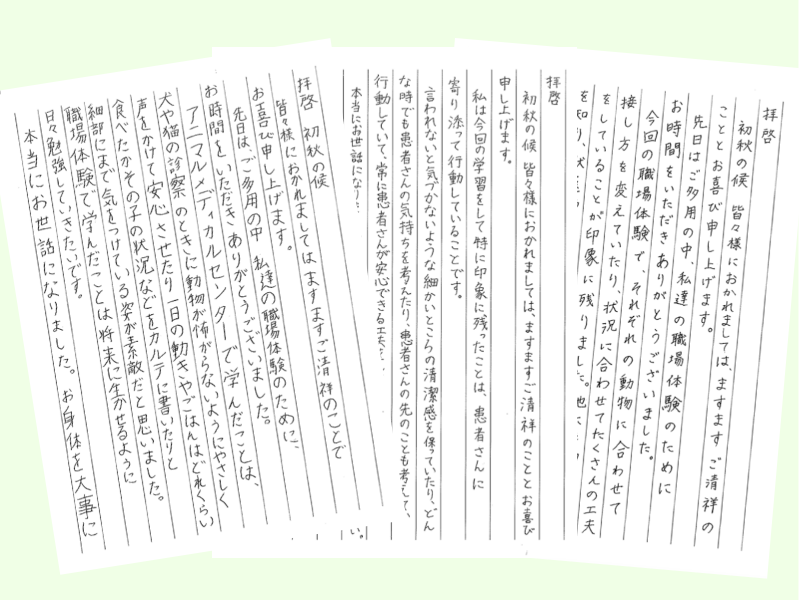 拝啓
初秋の候 皆々様におかれましては、ますますご清祥の
こととお喜び申し上げます。
先日はご多用の中、私達の職場体験のために
お時間をいただきありがとうございました。
今回の職場体験で、それぞれの動物に合わせて
接し方を変えていたり、状況に合わせてたくさんの工夫
をしていることが印象に残りました。他
を知り、
拝啓
初秋の候 皆々様におかれましては、ますますご清祥のこととお喜び
申し上げます。
私は今回の学習をして特に印象に残ったことは、患者さんに
寄り添って行動していることです。
言われないと気づかないような細かいところの清潔感を保っていたり、どん
な時でも患者さんの気持ちを考えたり、患者さんの先のことも考えて、
行動していて、常に患者さんが安心できる工夫
本当にお世話になり
い。
拝啓 初秋の候
皆々様におかれましてはますますご清祥のことで
お喜び申し上げます。
先日は、ご多用の中 私達の職場体験のために、
お時間をいただきありがとうございました。
アニマルメディカルセンターで学んだことは、
犬や猫の診察のときに動物が怖がらないようにやさしく
声をかけて安心させたり一日の動きやごはんはどれくらい
食べたかその子の状況などをカルテに書いたりと
細部にまで気をつけている姿が素敵だと思いました。
職場体験で学んだことは将来に生かせるように
日々勉強していきたいです。
本当にお世話になりました。お身体を大事に